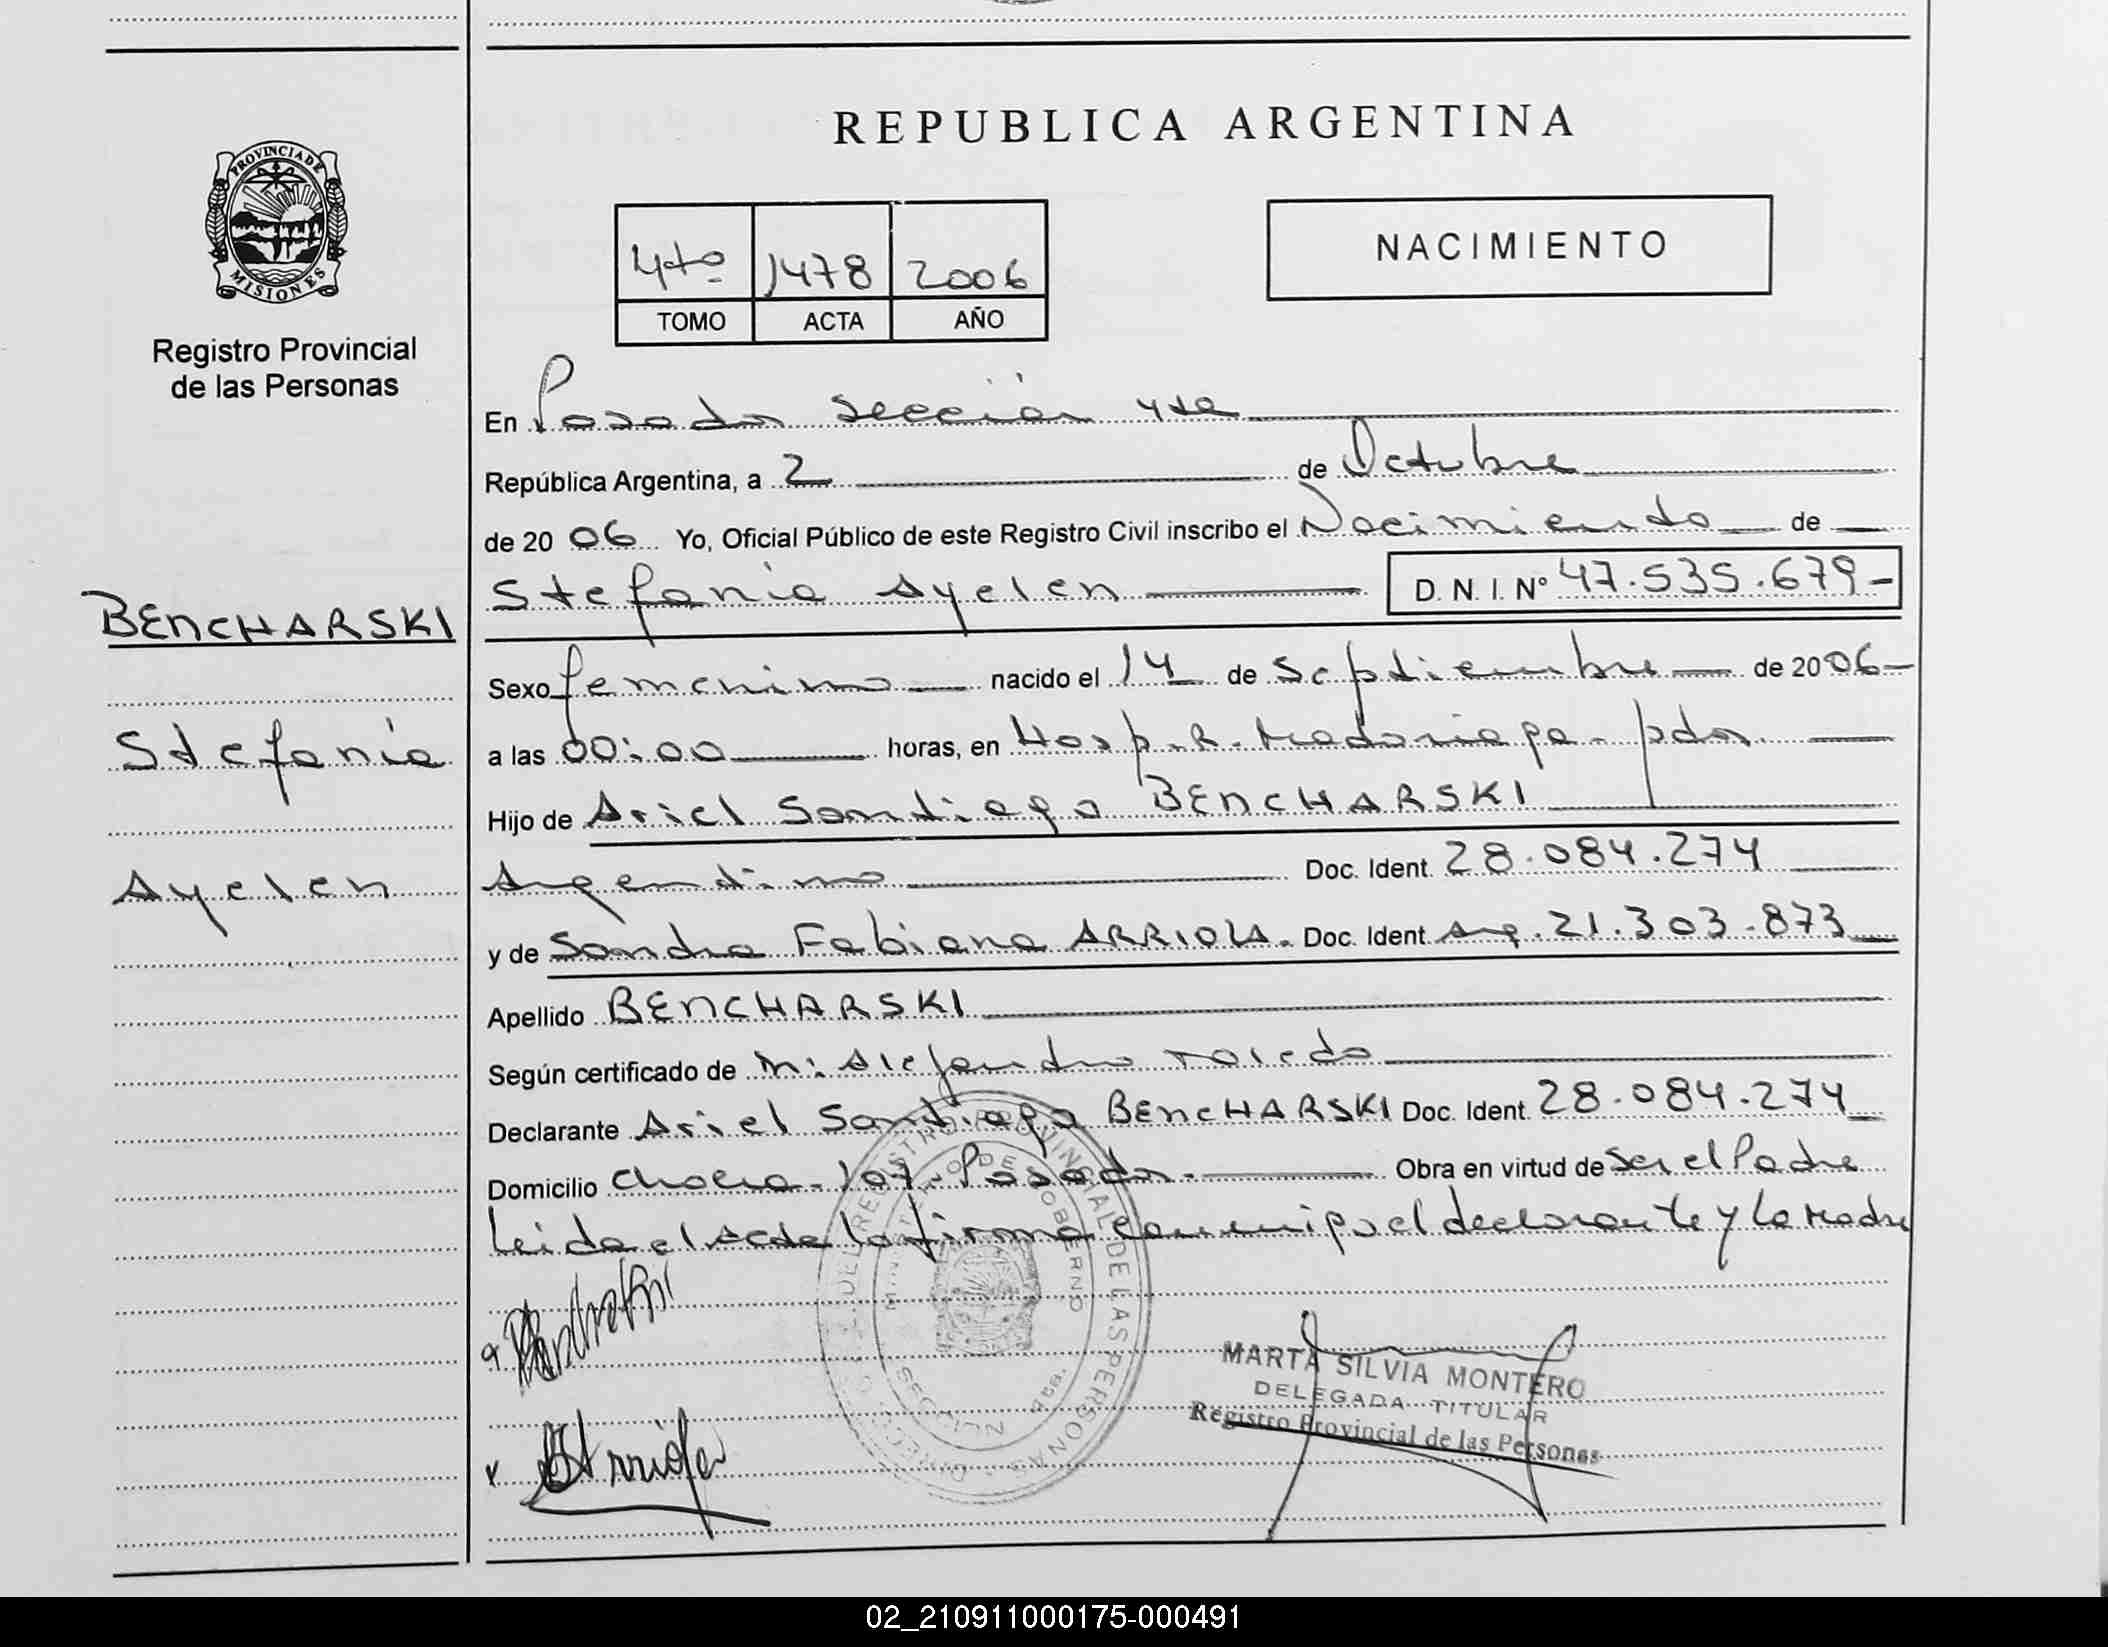 REPUBLICA ARGENTINA
PROVINCIA DE
MISIONES
Registro Provincial
de las Personas
NACIMIENTO
4to 1478 2006
TOMO ACTA AÑO
En Posadas Sección 4ta
República Argentina, a 2 de Octubre
de 20 06 Yo, Oficial Público de este Registro Civil inscribo el Nacimiento de
Stefania Ayelen D. N. I. Nº 47.535.679-
BENCHARSKI
Stefania
Ayelen
Sexo femenino nacido el 14 de Septiembre de 20 06-
a las 00:00 horas, en Hosp. R. Madariaga - pdas.
Hijo de Ariel Santiago BENCHARSKI
Argentino Doc. Ident. 28.084.274
y de Sandra Fabiana ARRIOLA. Doc. Ident. Arg. 21.303.873
Apellido BENCHARSKI
Según certificado de M: Alejandro Toledo
Declarante Ariel Santiago BENCHARSKI Doc. Ident. 28.084.274
Domicilio Chacra - 107 - Posadas. Obra en virtud de Ser el Padre
Leida el Acta la firma conmigo el declarante y la Madre
MINISTERIO DE GOBIERNO
SECCION 4ta.
MARTA SILVIA MONTERO
DELEGADA TITULAR
Registro Provincial de las Personas
02_210911000175-000491